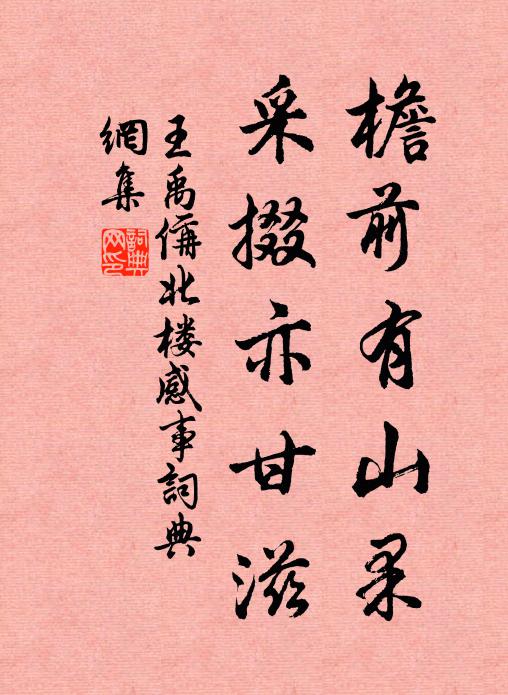 檐前有山果
采掇亦甘滋
王禹偁北楼感事詞典
網集
詞典網印